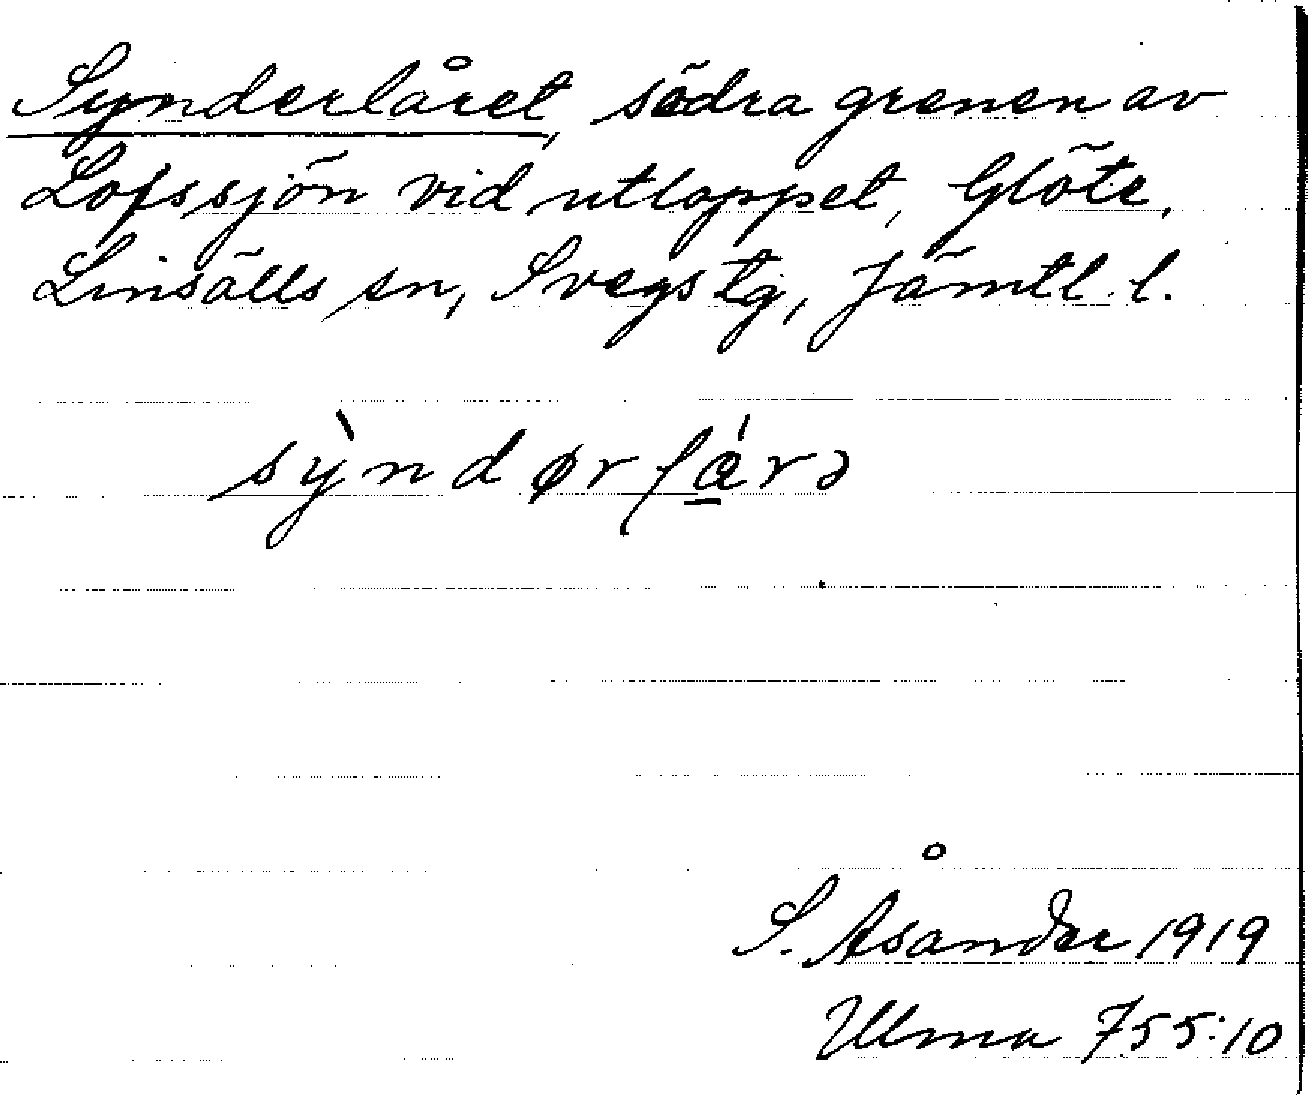 Synderlåret, södra grenen av
Lofssjön vid utloppet, Glöte,
Linsälls sn, Svegs tg, Jämtl. l.
sỳndørlárə
S. Åsander 1919
Ulma 755:10